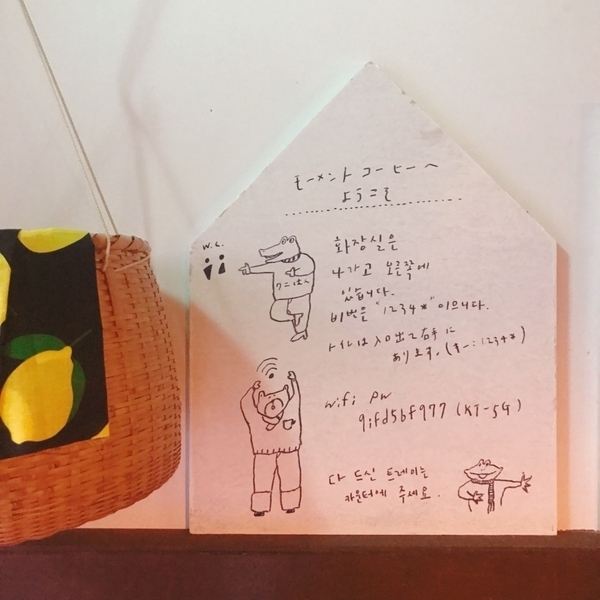 モーメント コーヒーへ
ようこそ
W.C.
화장실은
나가고 오른쪽에
있습니다.
비번은 "1234*" 이으니다.
トイレは入口出て右手に
あります。(キー:1234*)
wifi pw
9ifd5bf977 (KT-5G)
다 드신 트레이는
카운터에 주세요.